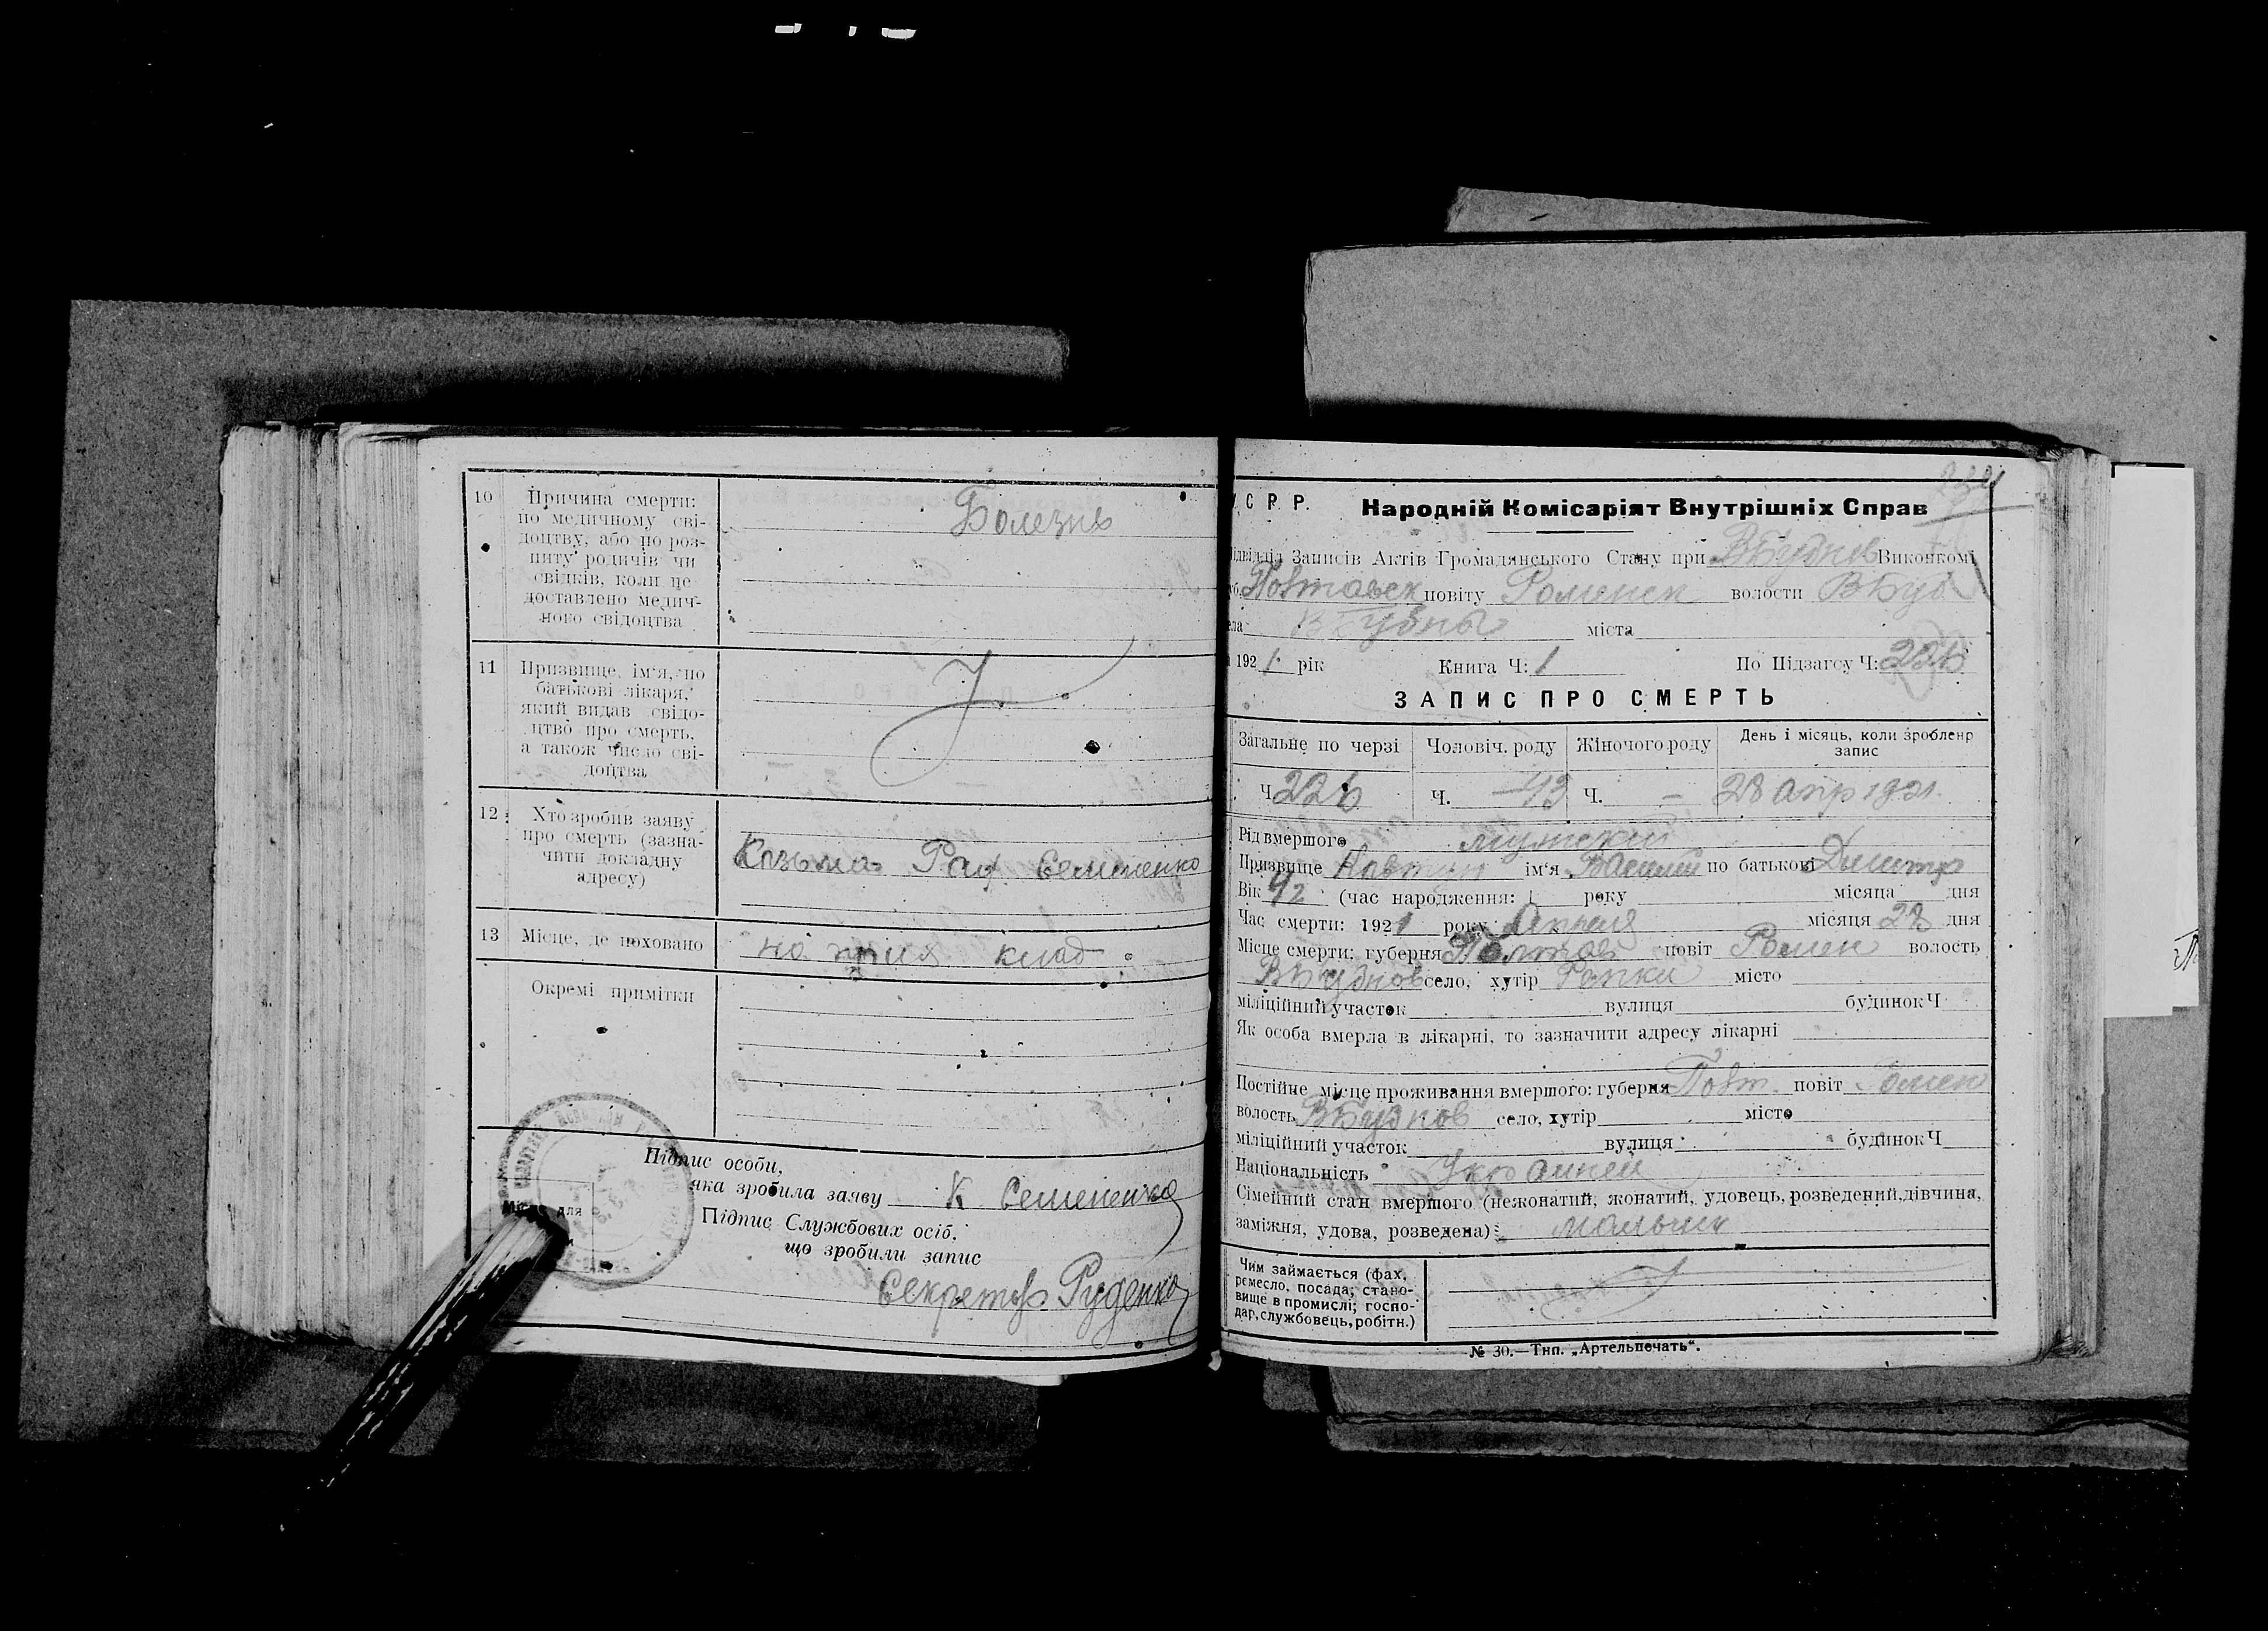 10 Причина смерти:
по медичному сві-
доцтву, або по роз-
питу родичів чи
свідків, коли не
доставлено медич-
ного свідоцтва
Болезнь
11 Призвище, ім'я, по
батькові лікаря,
який видав свідо-
цтво про смерть,
а також число сві-
доцтва
12 Хто зробив заяву
про смерть (зазна-
чити докладну
адресу)
Козьма Раф Семененко
13 Місце, де поховано
на кладб
Окремі примітки
Підпис особи,
яка зробила заяву К Семененко
Місце для
Підпис Службових осіб,
що зробили запис
Секретар Руденко
У С Р Р. Народній Комісаріят Внутрішніх Справ
Підвідділ Записів Актів Громадянського Стану при ВБубнов Виконкомі
Повтавск повіту Роменск волости ВБуб
села ВБубны міста
1921 рік Книга Ч: 1 По Підзагсу Ч: 226
ЗАПИС ПРО СМЕРТЬ
Загальне по черзі Чоловіч. роду Жіночого роду День і місяць, коли зроблено запис
Ч. 226 Ч. Ч. – 28 апр 1921.
Рід вмершого мужской
Призвище Ковтун ім'я Василий по батькові Дмитр
Вік (час народження: 1 року місяця дня
Час смерти: 1921 року Апреля місяця 28 дня
Місце смерти: губерня Полтав повіт Ромен волость
ВБубнов село, хутір місто
міліційний участок вулиця будинок Ч
Як особа вмерла в лікарні, то зазначити адресу лікарні
Постійне місце проживання вмершого: губерня Повт. повіт Ромен
волость ВБубнов село, хутір місто
міліційний участок вулиця будинок Ч
Національність
Сімейний стан вмершого (нежонатий, жонатий, удовець, розведений, дівчина,
заміжня, удова, розведена): мальчик
Чим займається (фах,
ремесло, посада; стано-
вище в промислі; госпо-
дар, службовець, робітн.)
№ 30.—Тип. „Артельпечать“.